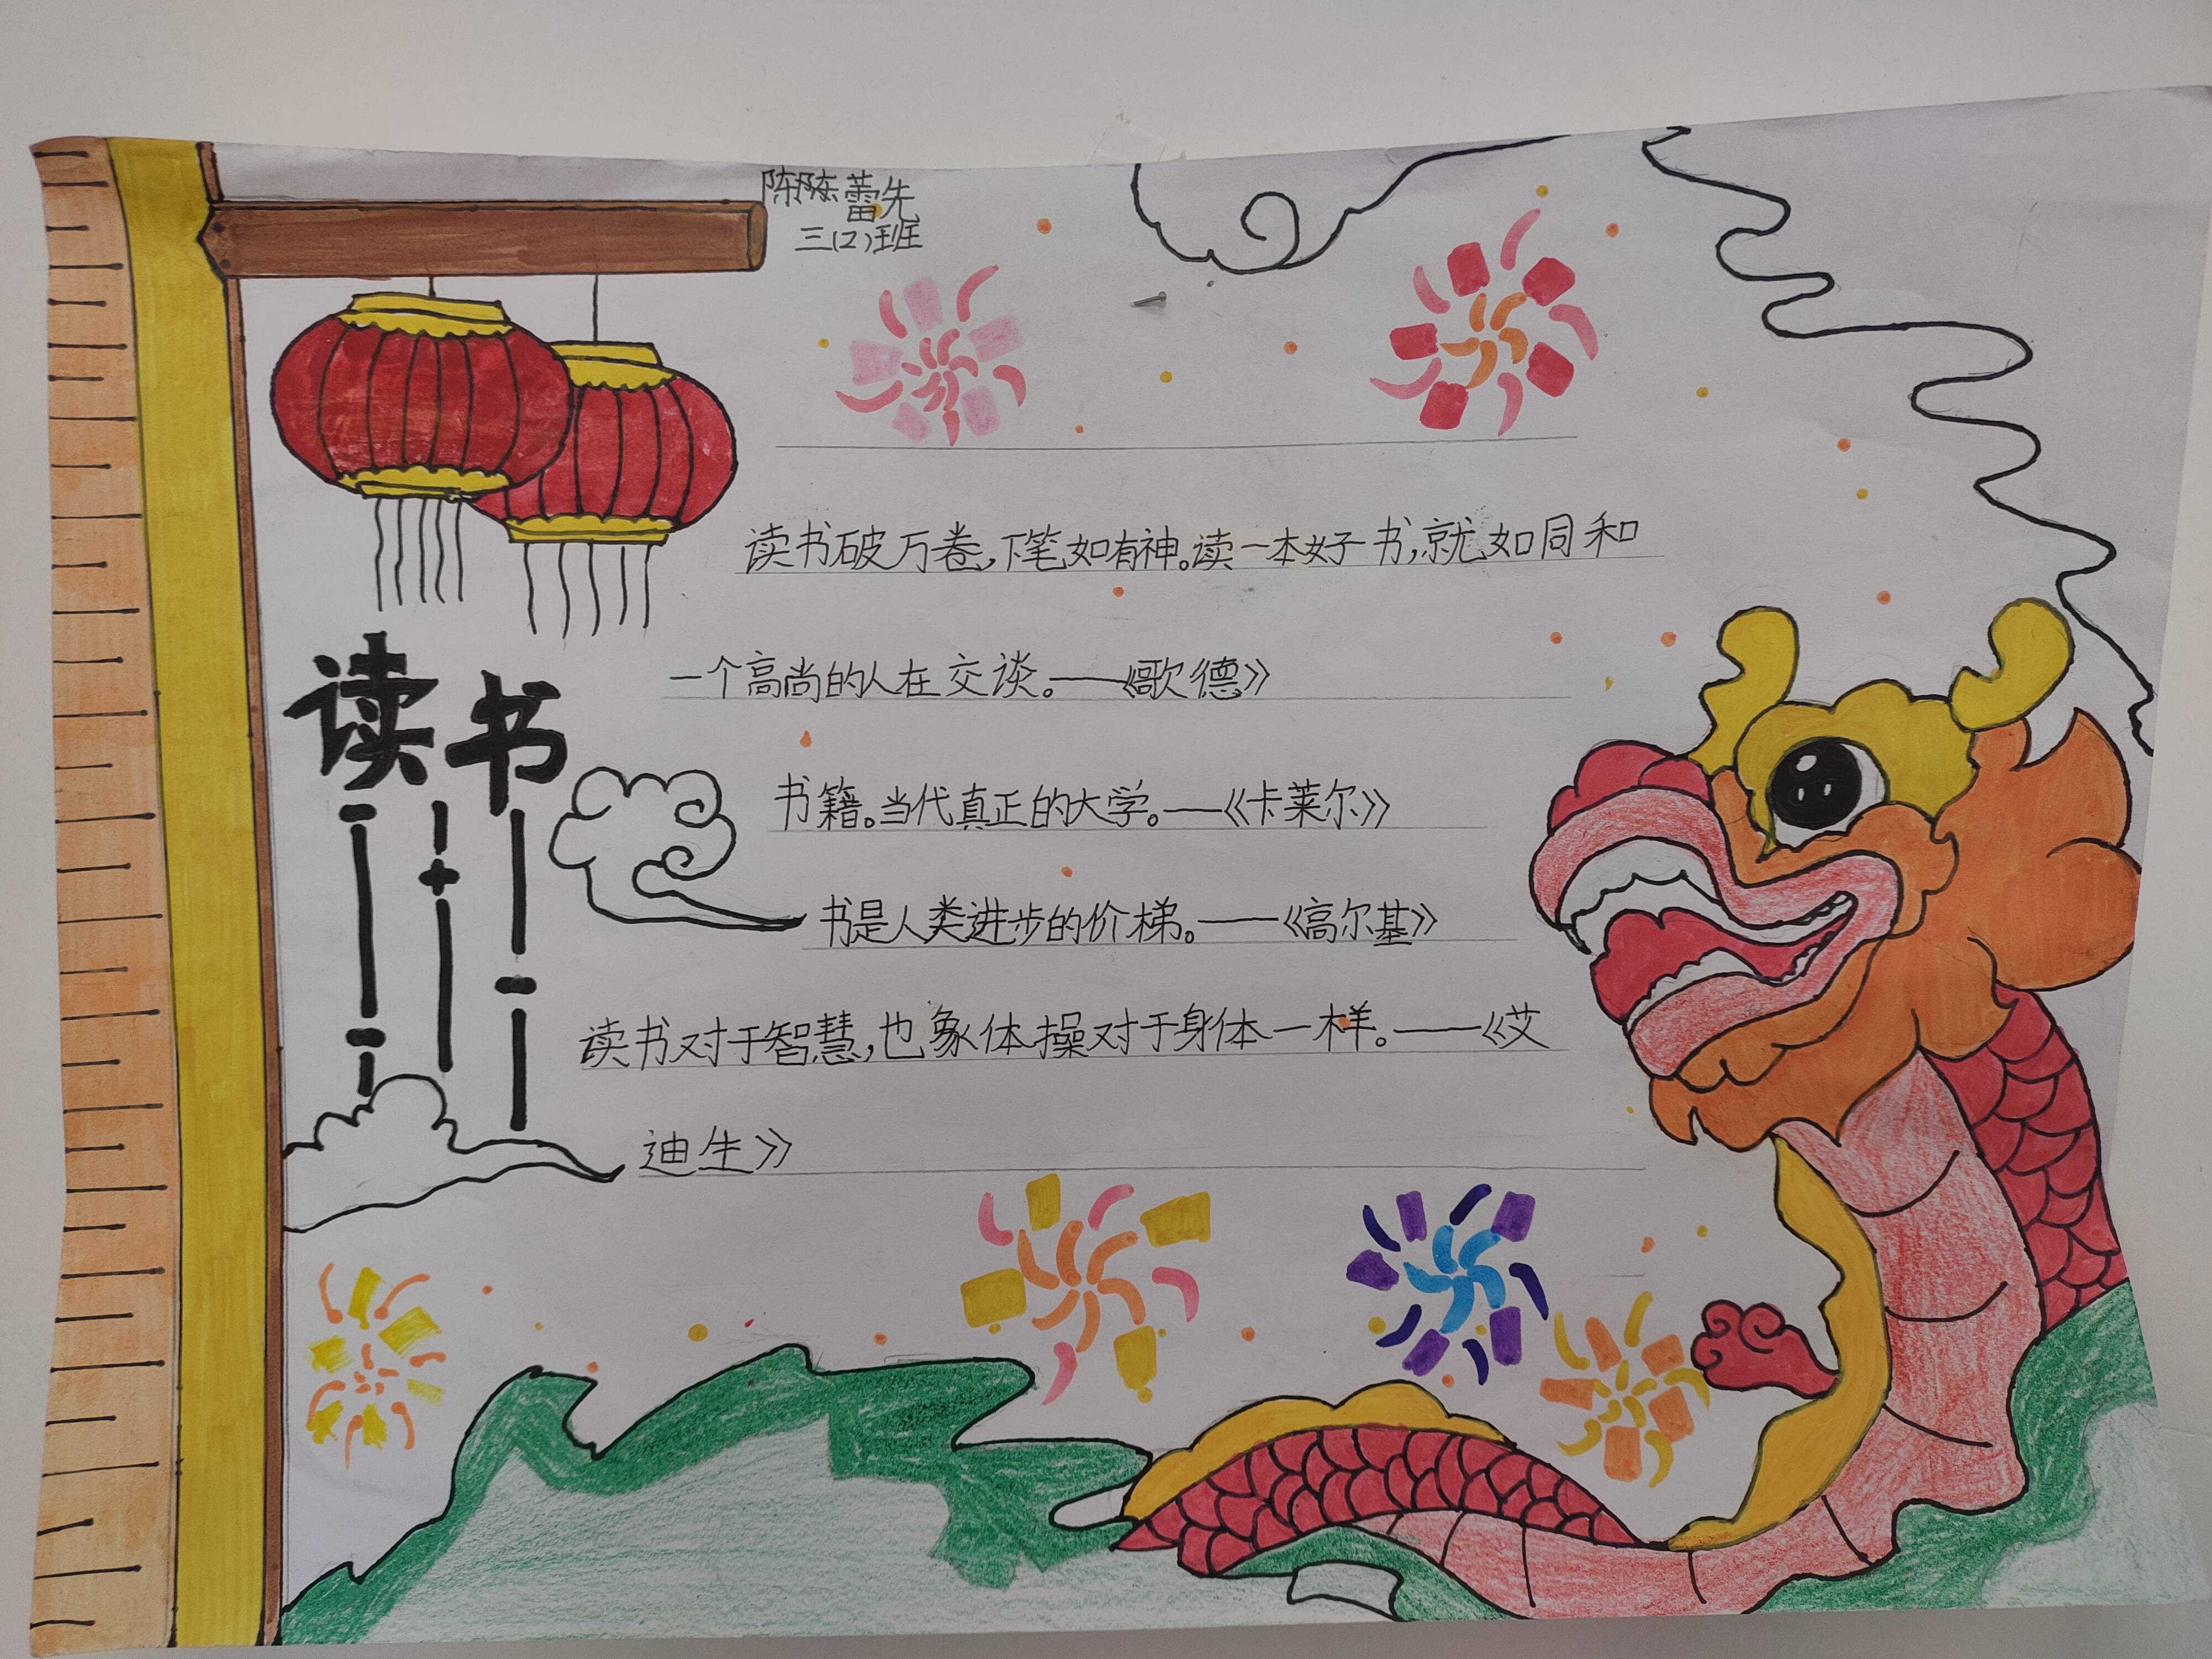 陈陈蕾先
三(2)班
读书
读书破万卷,下笔如有神。读一本好书,就如同和
一个高尚的人在交谈。——《歌德》
书籍。当代真正的大学。——《卡莱尔》
书是人类进步的价梯。——《高尔基》
读书对于智慧,也象体操对于身体一样。——《艾
迪生》